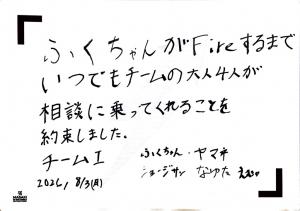 ふくちゃんがFireするまで
いつでもチームの大人4人が
相談に乗ってくれることを
約束しました。
チームI
ふくちゃん・ヤマチ
2026, 8/3(月)
ショージサン なゆた